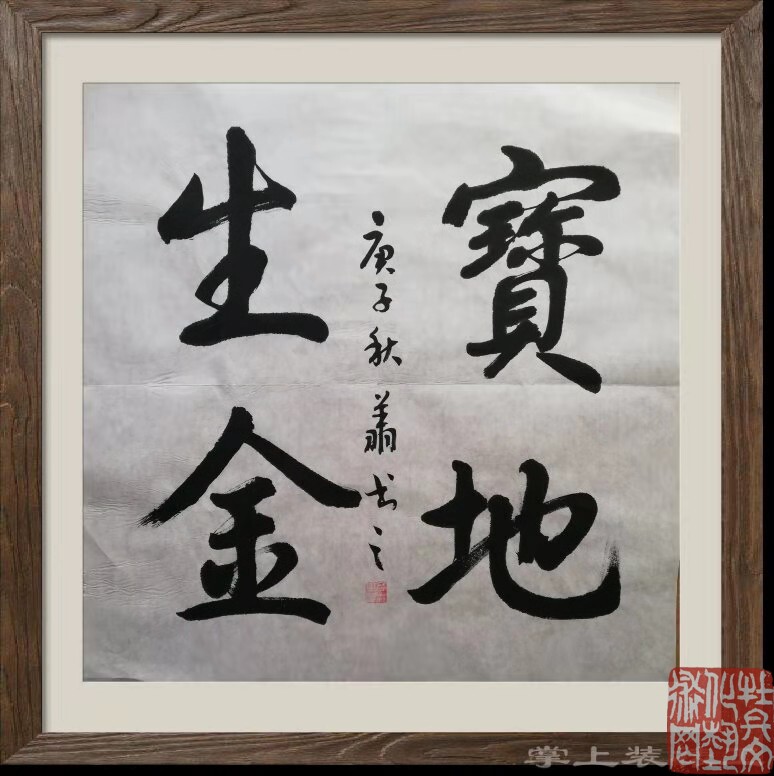 寶地
生金
庚子秋 书之
掌上装